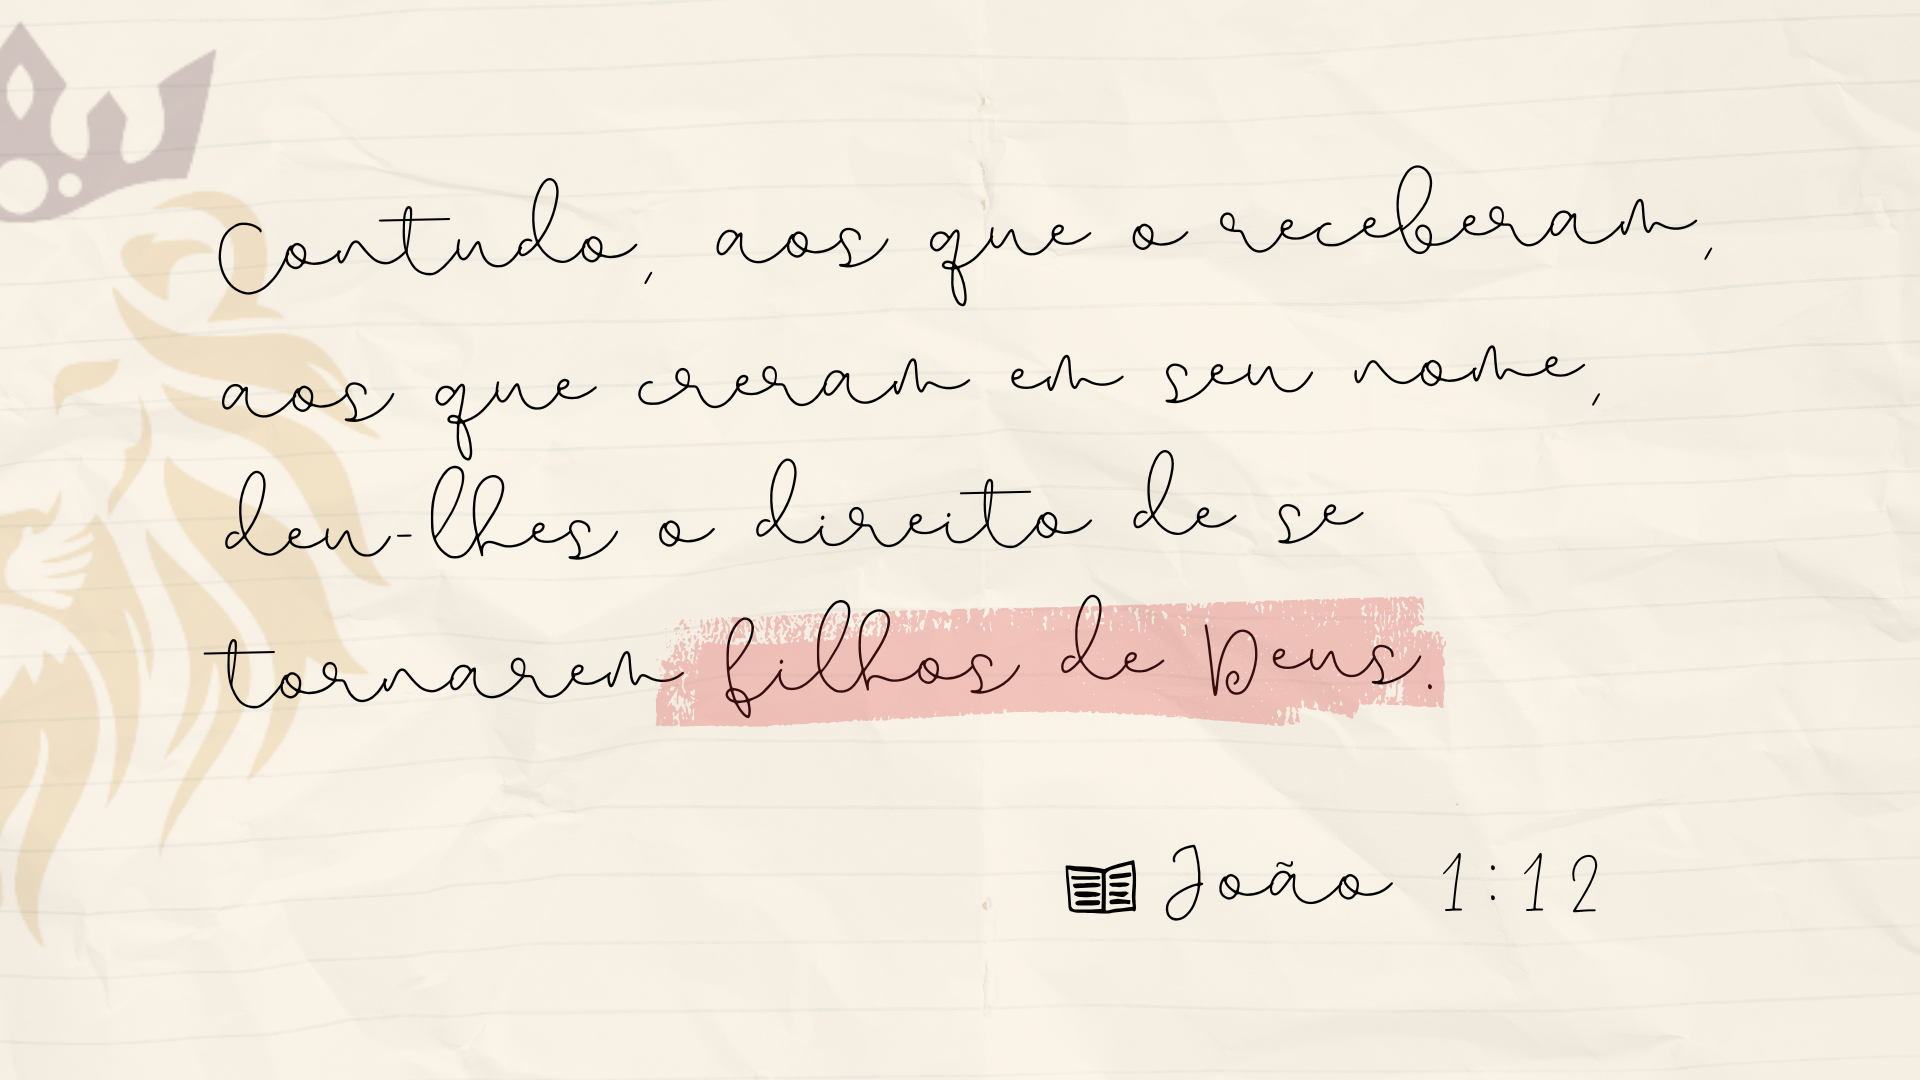 Contudo, aos que o receberam,
aos que creram em seu nome,
deu-lhes o direito de se
tornarem filhos de Deus.
João 1:12